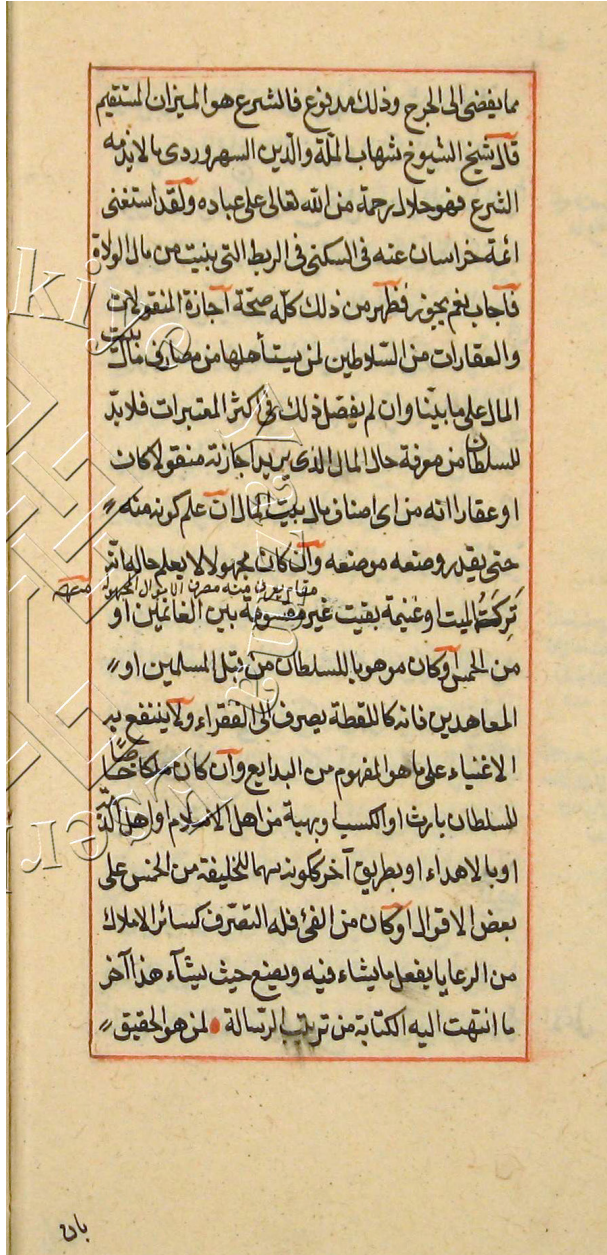 مما يفضى الى الحرج وذلك مدفوع فالشرع هو الميزان المستقيم
قال شيخ الشيوخ شهاب الملة والدين السهروردى ما لا يذمه
الشرع فهو حلال رحمة من الله تعالى على عباده ولقد استغنى
ائمة خراسان عنه فى السكنى فى الربط التى بنيت من مال الولاة
فاجاب نعم يجوز فظهر من ذلك كله صحة اجازة المنقولات
والعقارات من السلاطين لمن يستأهلها من مصارف مال بيت
المال على ما بينا وان لم يفصل ذلك فى اكثر المعتبرات فلا بد
للسلطان من معرفة حال المال الذى يريد اجازته منقولا كان
او عقارا انه من اى اصناف مال بيت المال ان علم كونه منه
حتى يقدر وضعه موضعه وان كان مجهولا لا يعلم حاله انه
مقام يعرف منه مصرف الاموال المجهولة منه
تركة الميت او غنيمة بقيت غير مقسومة بين الغانمين او
من الخمس او كان موهوبا للسلطان من قبل المسلمين او
المعاهدين فانه كاللقطة يصرف الى الفقراء ولا ينتفع به
الاغنياء على ما هو المفهوم من البدايع وان كان ملكا خاصا
للسلطان بارث او اكتسب وبهبة من اهل الاسلام او اهل الذمة
او بالاهداء او بطريق آخر ككونه سهما للخليفة من الخمس على
بعض الاقوال او كان من الفئ فله التصرف كسائر الاملاك
من الرعايا يفعل ما يشاء فيه ويصنع حيث يشآء هذا آخر
ما انتهت اليه الكتابة من ترتيب الرسالة لمن هو الحقيق
بان